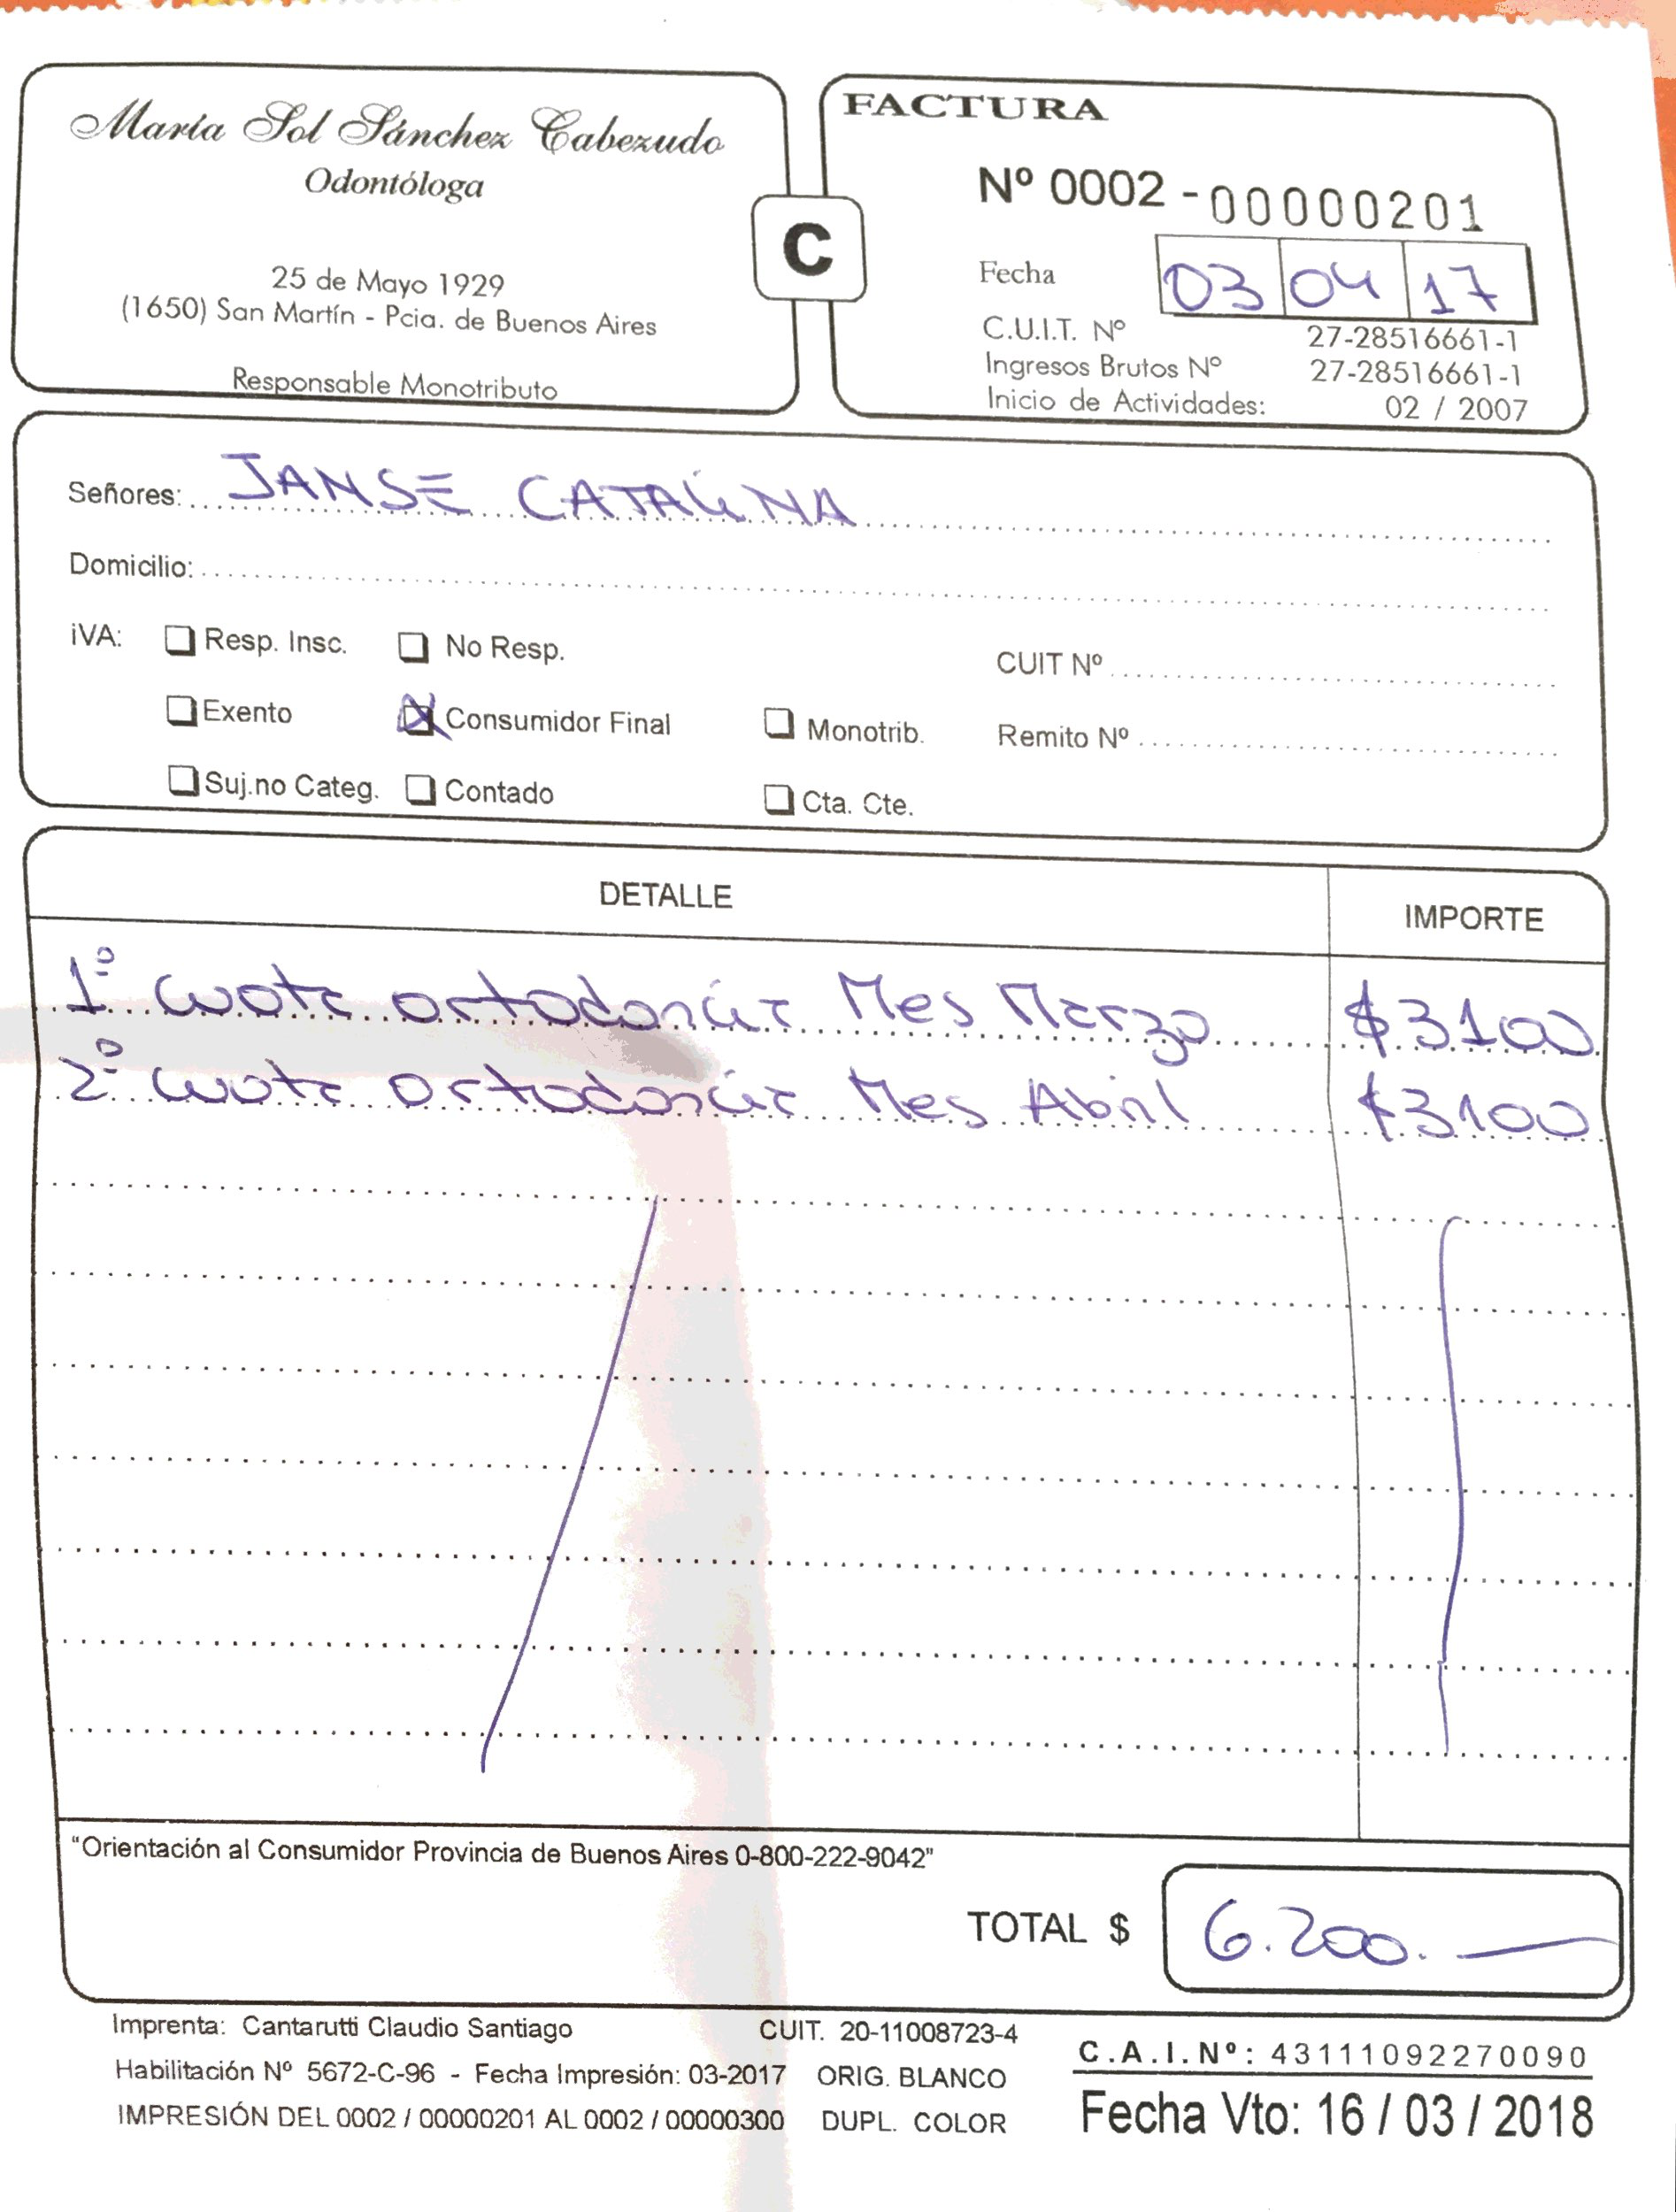 María Sol Sánchez Cabezudo
Odontóloga
25 de Mayo 1929
(1650) San Martín - Pcia. de Buenos Aires
Responsable Monotributo
C
FACTURA
Nº 0002 - 00000201
Fecha 03 04 17
C.U.I.T. Nº 27-28516661-1
Ingresos Brutos Nº 27-28516661-1
Inicio de Actividades: 02 / 2007
Señores: JANSE CATALINA
Domicilio:
iVA: Resp. Insc. No Resp. CUIT Nº
Exento Consumidor Final Monotrib. Remito Nº
Suj.no Categ. Contado Cta. Cte.
DETALLE IMPORTE
1º cuota ortodoncia Mes Marzo $3100
2º cuota ortodoncia Mes Abril $3100
"Orientación al Consumidor Provincia de Buenos Aires 0-800-222-9042"
TOTAL $ 6.200.—
Imprenta: Cantarutti Claudio Santiago CUIT. 20-11008723-4
Habilitación Nº 5672-C-96 - Fecha Impresión: 03-2017 ORIG. BLANCO
IMPRESIÓN DEL 0002 / 00000201 AL 0002 / 00000300 DUPL. COLOR
C.A.I.Nº: 43111092270090
Fecha Vto: 16 / 03 / 2018